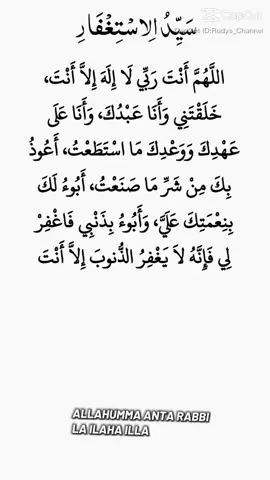 CapCut
ID:Rudys_Channel
سَيِّدُ الِاسْتِغْفَارِ
اللَّهُمَّ أَنْتَ رَبِّي لَا إِلَهَ إِلاَّ أَنْتَ،
خَلَقْتَنِي وَأَنَا عَبْدُكَ، وَأَنَا عَلَى
عَهْدِكَ وَوَعْدِكَ مَا اسْتَطَعْتُ، أَعُوذُ
بِكَ مِنْ شَرِّ مَا صَنَعْتُ، أَبُوءُ لَكَ
بِنِعْمَتِكَ عَلَيَّ، وَأَبُوءُ بِذَنْبِي فَاغْفِرْ
لِي فَإِنَّهُ لاَ يَغْفِرُ الذُّنوبَ إِلاَّ أَنْتَ
ALLAHUMMA ANTA RABBI
LA ILAHA ILLA